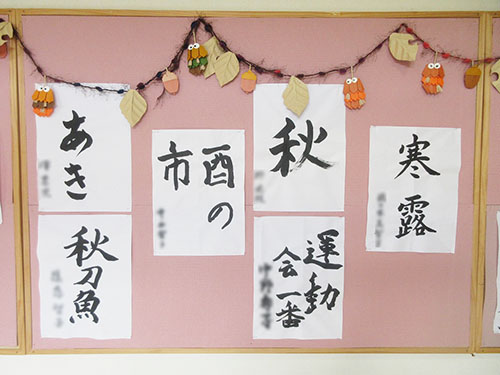 あき
秋刀魚
酉の
市
秋
運動
会一番
寒露